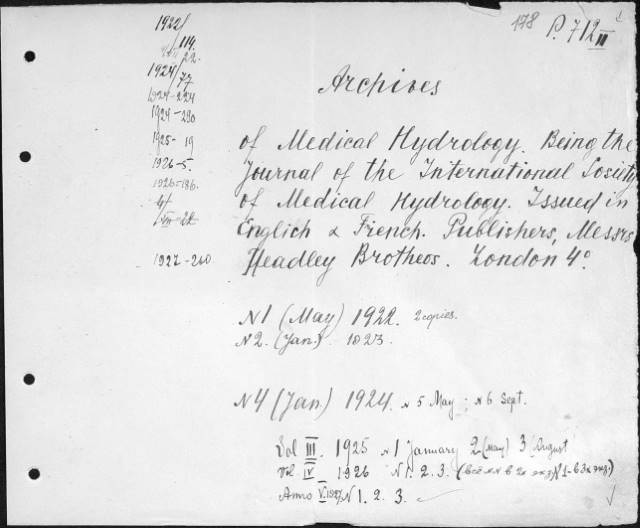 178 P. 712 II
1922/
114.
22.
1924/
77
1924-224
1924-290
1925- 19
1926-5.
1926-186.
4/
VII-22
1927-260
Archives
of Medical Hydrology. Being the
Journal of the International Society
of Medical Hydrology. Issued in
Englich & French. Publishers, Messrs
Headley Brotheos. London 4°.
N1 (May) 1922. 2 copies.
N2. (Jan.) 1923.
N4 (Jan.) 1924. N 5 May; N 6 Sept.
Vol III. 1925 N 1 January 2 (May) 3 (August
Vol. IV 1926 N 1. 2. 3. (все №№ в 2х экз. N1-в 3х экз.)
Anno V. 1927 N 1. 2. 3.